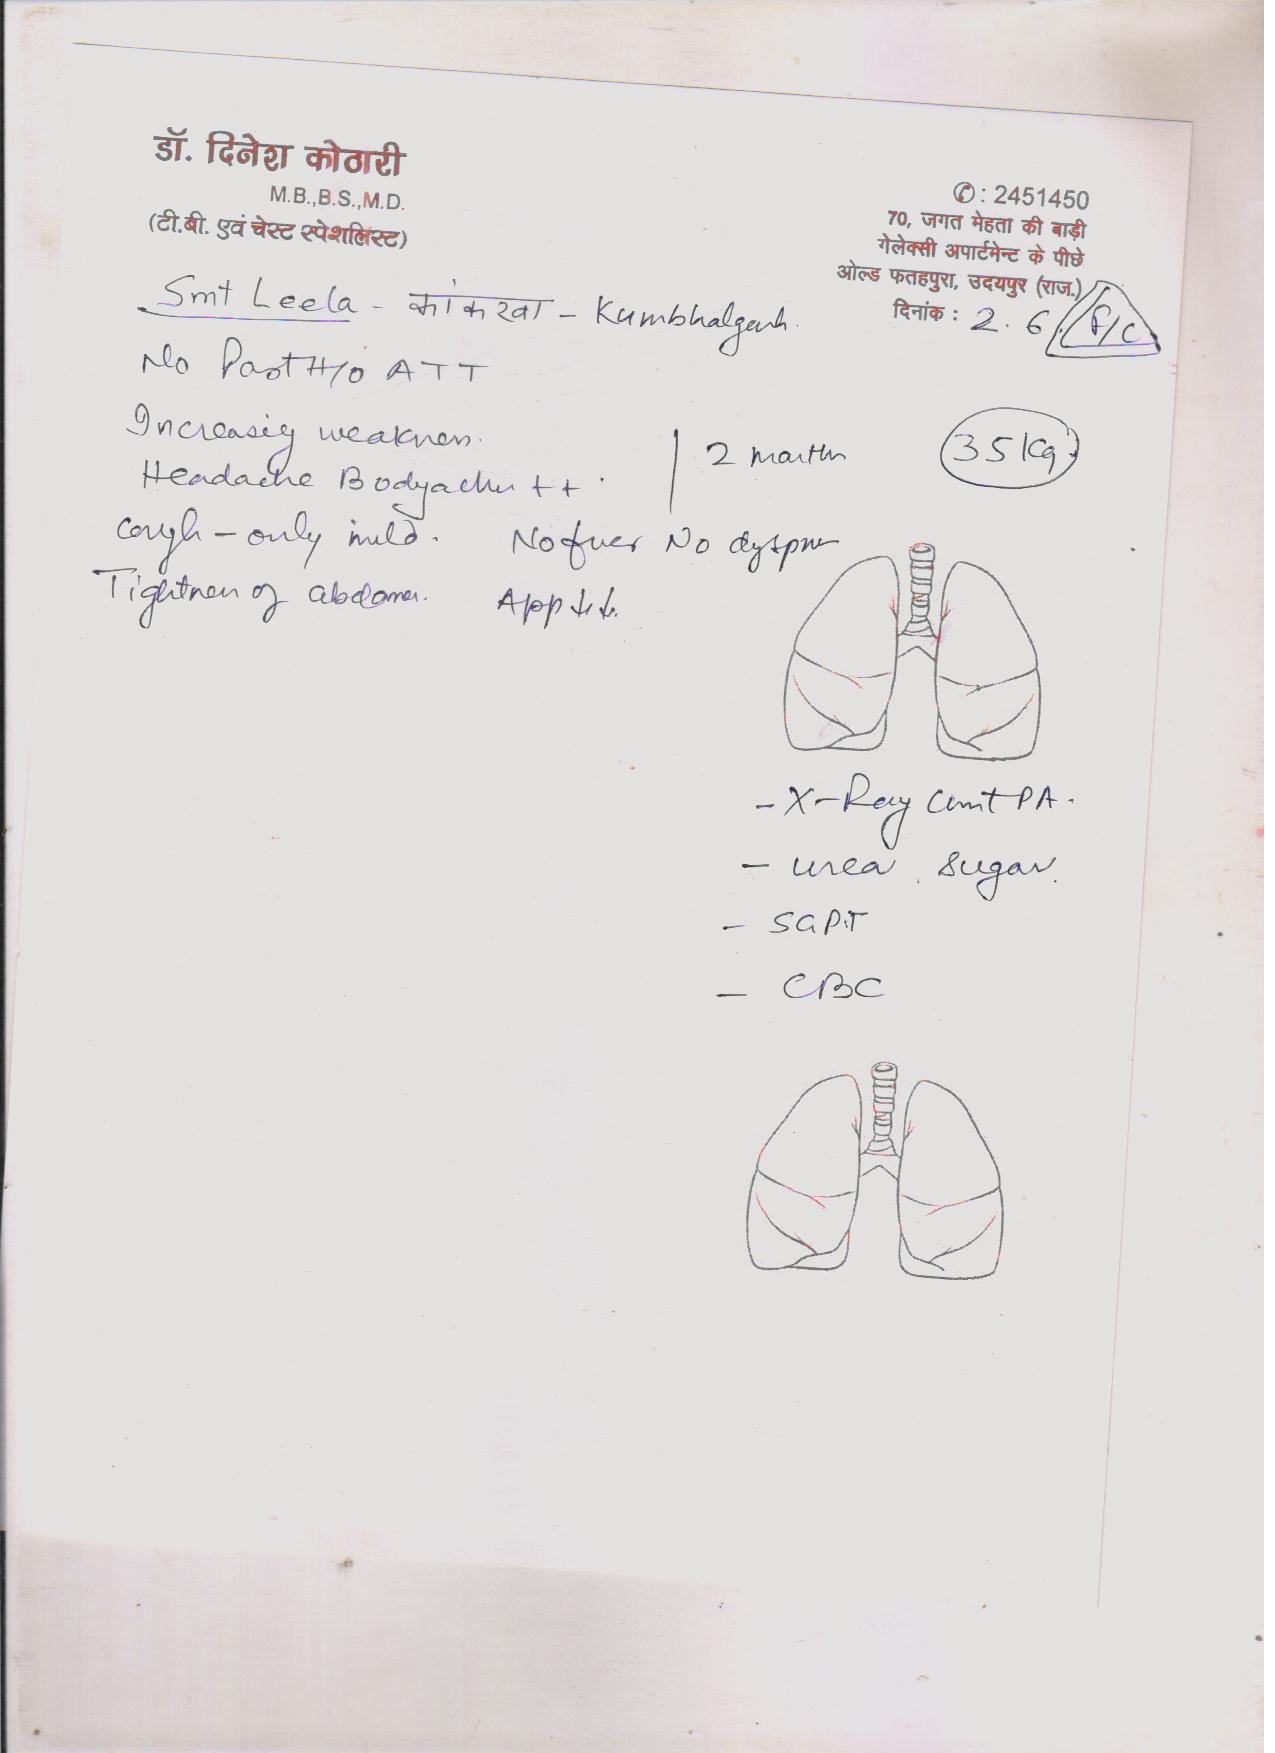 डॉ. दिनेश कोठारी
M.B.,B.S.,M.D.
(टी.बी. एवं चेस्ट स्पेशलिस्ट)
✆: 2451450
70, जगत मेहता की बाड़ी
गेलेक्सी अपार्टमेन्ट के पीछे
ओल्ड फतहपुरा, उदयपुर (राज.)
दिनांक : 2.6. F/C
Smt Leela - कांकरवा - Kumbhalgarh.
No Past H/o ATT
Increasing weakness.
Headache Bodyache ++ 2 months 35 Kg
Cough - only mild. No fever No dyspnoea
Tightness of abdomen. App ↓↓.
- X-Ray Chest PA.
- Urea, Sugar.
- SGPT
- CBC